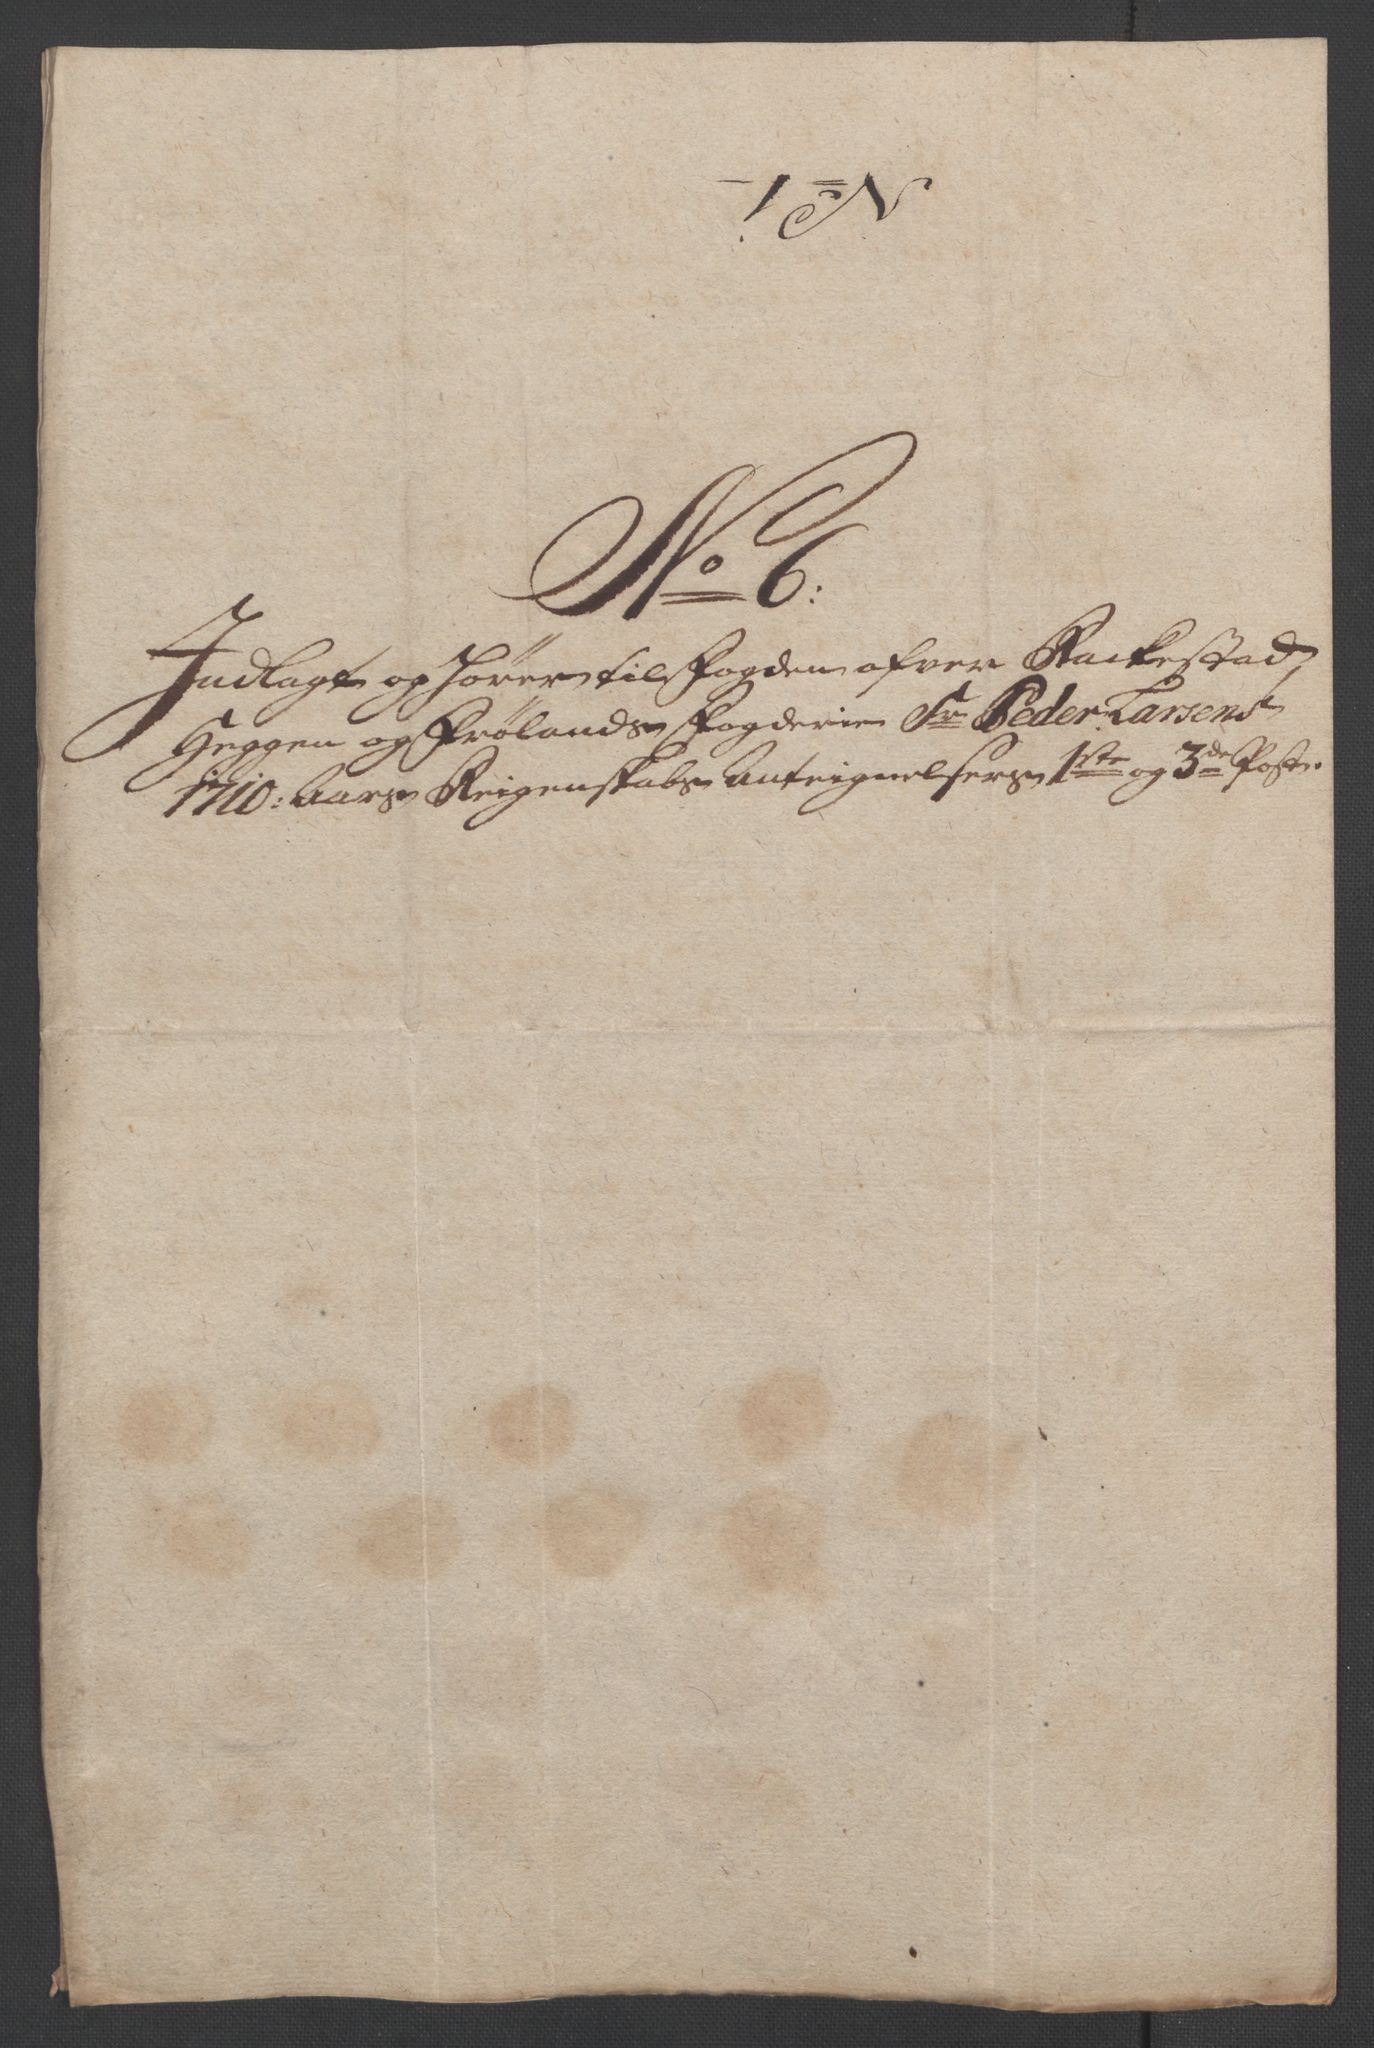 No 1
No 6:
Indlagt og hører til Fogden ofver Rackestad,
Heggen og Frølands Fogderie Sr Peder Larsens
1710: Aars Reigenskabs Anteignelsers 1ste og 3de Poster